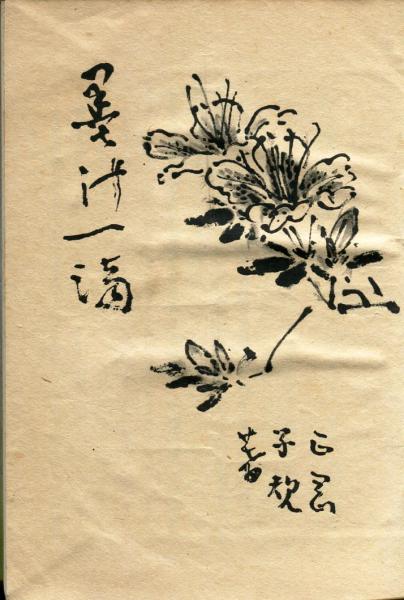 墨汁一滴
正岡
子規
著